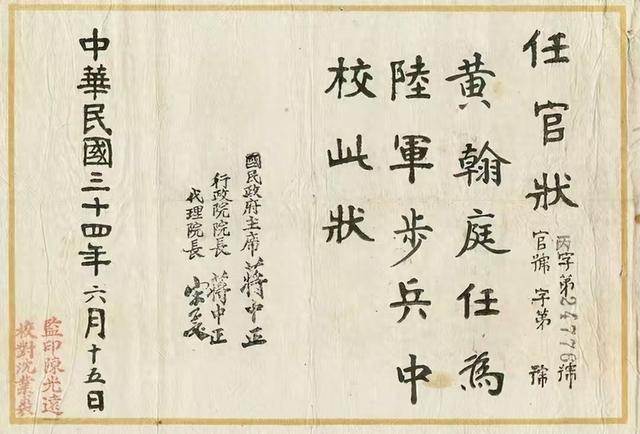 任官狀
丙字第24776號
官號 字第 號
黃翰庭任為
陸軍步兵中
校此狀
國民政府主席 蔣中正
行政院院長 蔣中正
代理院長 宋子文
中華民國三十四年六月十五日
監印陳光遠
校對沈業